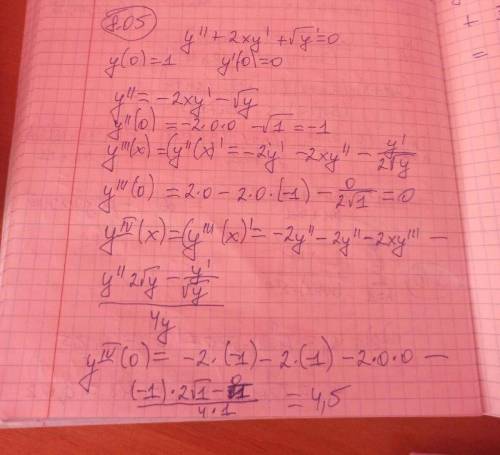 8.05
y'' + 2xy' + √y' = 0
y(0) = 1 y'(0) = 0
y'' = -2xy' - √y
y''(0) = -2·0·0 - √1 = -1
y'''(x) = (y''(x)' = -2y' - 2xy'' - y'/2√y
y'''(0) = 2·0 - 2·0·(-1) - 0/2√1 = 0
y^IV(x) = (y'''(x)' = -2y'' - 2y'' - 2xy''' -
(y''2√y - y'/√y)/4y
y^IV(0) = -2·(-1) - 2·(-1) - 2·0·0 -
((-1)·2√1 - )/4·1 = 4,5